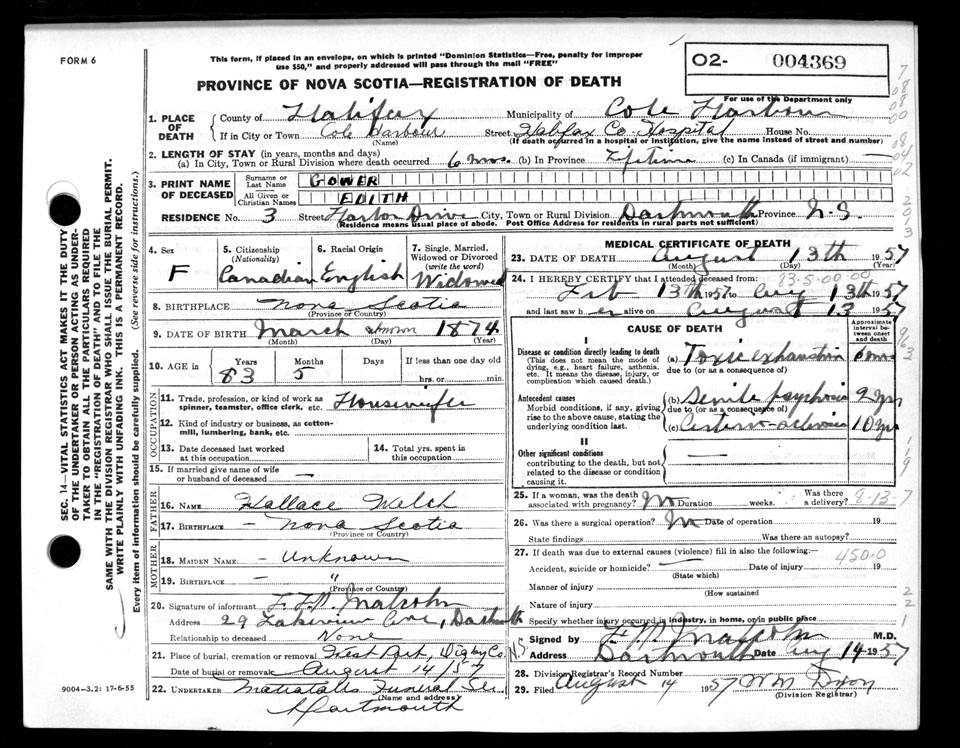 FORM 6
This form, if placed in an envelope, on which is printed "Dominion Statistics—Free, penalty for improper
use $50," and properly addressed will pass through the mail "FREE"
PROVINCE OF NOVA SCOTIA—REGISTRATION OF DEATH
O2- 004369
For use of the Department only
1. PLACE OF DEATH County of Halifax Municipality of Cole Harbour
If in City or Town Cole Harbour Street Halifax Co. Hospital House No.
(Name) (If death occurred in a hospital or institution, give the name instead of street and number)
2. LENGTH OF STAY (in years, months and days)
(a) In City, Town or Rural Division where death occurred 6 mos. (b) In Province Lifetime (c) In Canada (if immigrant) —
3. PRINT NAME OF DECEASED Surname or Last Name GOWER
All Given or Christian Names EDITH
RESIDENCE No. 3 Street Drive City, Town or Rural Division Dartmouth Province N.S.
(Residence means usual place of abode. Post Office Address for residents in rural parts not sufficient)
4. Sex F
5. Citizenship (Nationality) Canadian
6. Racial Origin English
7. Single, Married, Widowed or Divorced (write the word) Widowed
8. BIRTHPLACE Nova Scotia
(Province or Country)
9. DATE OF BIRTH March 1874
(Month) (Day) (Year)
10. AGE in Years 83 Months 5 Days If less than one day old hrs. or min.
OCCUPATION
11. Trade, profession, or kind of work as spinner, teamster, office clerk, etc. Housewife
12. Kind of industry or business, as cotton-mill, lumbering, bank, etc.
13. Date deceased last worked at this occupation
14. Total yrs. spent in this occupation
15. If married give name of wife or husband of deceased —
FATHER
16. NAME Wallace Welch
17. BIRTHPLACE — Nova Scotia
(Province or Country)
MOTHER
18. MAIDEN NAME — Unknown
19. BIRTHPLACE — "
(Province or Country)
20. Signature of informant Malcolm
Address 29 Lakeview Ave, Dartmouth
Relationship to deceased None
21. Place of burial, cremation or removal Park, Digby Co. N.S.
Date of burial or removal August 14/57
22. UNDERTAKER Mattatalls Funeral Ser.
(Name and address)
Dartmouth
9004—3.2: 17-6-55
MEDICAL CERTIFICATE OF DEATH
23. DATE OF DEATH August 13th 1957
(Month) (Day) (Year)
24. I HEREBY CERTIFY that I attended deceased from: 83-5-00-00
Feb 13th 1957 to Aug 13th 1957
and last saw her alive on August 13 1957
CAUSE OF DEATH
Approximate interval between onset and death
I
Disease or condition directly leading to death (a) Toxic exhaustion 6 mos
(This does not mean the mode of dying, e.g., heart failure, asthenia, etc. It means the disease, injury, or complication which caused death.)
due to (or as a consequence of)
Antecedent causes (b) Senile psychosis 2 yrs
Morbid conditions, if any, giving rise to the above cause, stating the underlying condition last.
due to (or as a consequence of)
(c) Arterio-sclerosis 10 yrs
II
Other significant conditions —
contributing to the death, but not related to the disease or condition causing it.
25. If a woman, was the death associated with pregnancy? No Duration weeks. Was there a delivery? 8-13-7
26. Was there a surgical operation? No Date of operation 19
State findings Was there an autopsy?
27. If death was due to external causes (violence) fill in also the following:— 450.0
Accident, suicide or homicide? — Date of injury 19
(State which)
Manner of injury
(How sustained)
Nature of injury
Specify whether injury occurred in industry, in home, or in public place
Signed by Malcolm M.D.
Address Dartmouth Date Aug 14 1957
28. Division Registrar's Record Number
29. Filed August 14 1957 Wm Dixon
(Division Registrar)
SEC. 14—VITAL STATISTICS ACT MAKES IT THE DUTY
OF THE UNDERTAKER OR PERSON ACTING AS UNDER-
TAKER TO OBTAIN ALL THE PARTICULARS REQUIRED
IN THE "REGISTRATION OF DEATH" AND TO FILE THE
SAME WITH THE DIVISION REGISTRAR WHO SHALL ISSUE THE BURIAL PERMIT.
WRITE PLAINLY WITH UNFADING INK. THIS IS A PERMANENT RECORD.
Every item of information should be carefully supplied. (See reverse side for instructions.)